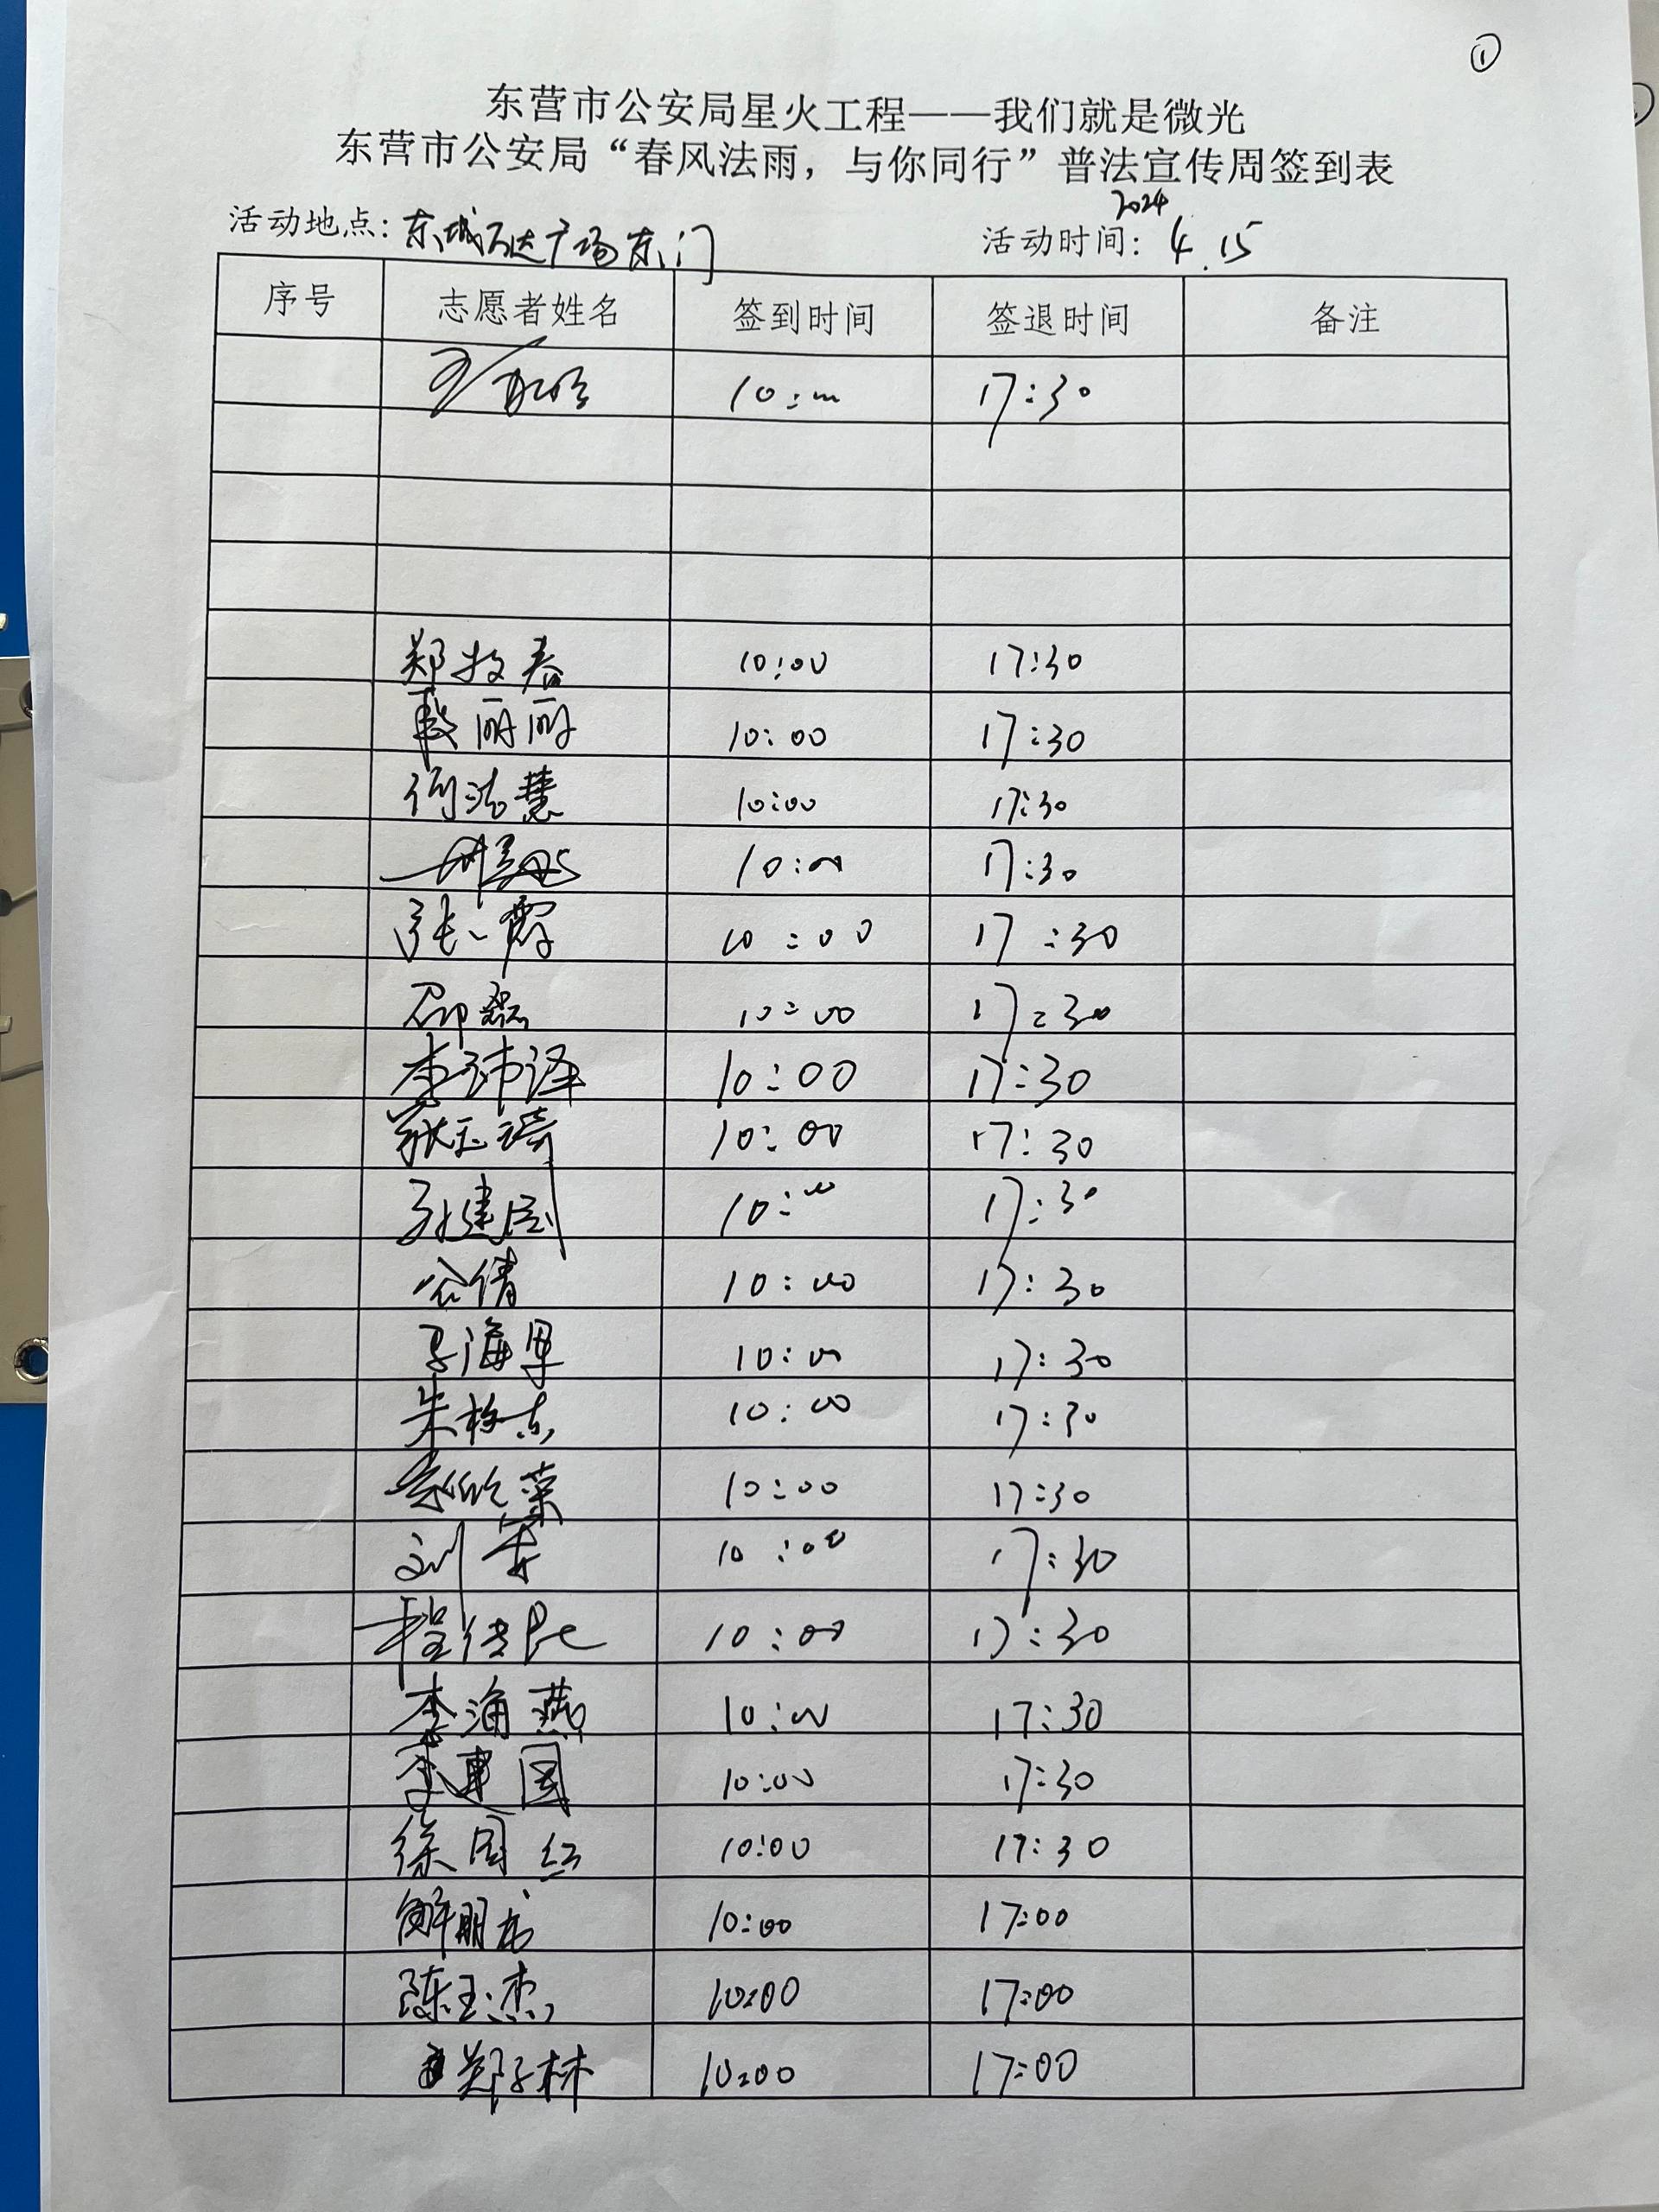 ①
东营市公安局星火工程——我们就是微光
东营市公安局“春风法雨，与你同行”普法宣传周签到表
2024
活动地点：东城万达广场东门 活动时间：4.15
序号 志愿者姓名 签到时间 签退时间 备注
10:00 17:30
郑牧春 10:00 17:30
殷丽丽 10:00 17:30
何洁慧 10:00 17:30
10:00 17:30
张霞 10:00 17:30
邵磊 10:00 17:30
李沛泽 10:00 17:30
耿玉琦 10:00 17:30
孙建国 10:00 17:30
公倩 10:00 17:30
马海军 10:00 17:30
朱栋志 10:00 17:30
10:00 17:30
刘军 10:00 17:30
程传民 10:00 17:30
李海燕 10:00 17:30
李建国 10:00 17:30
徐国红 10:00 17:30
解朋志 10:00 17:00
陈玉杰 10:00 17:00
郑子林 10:00 17:00